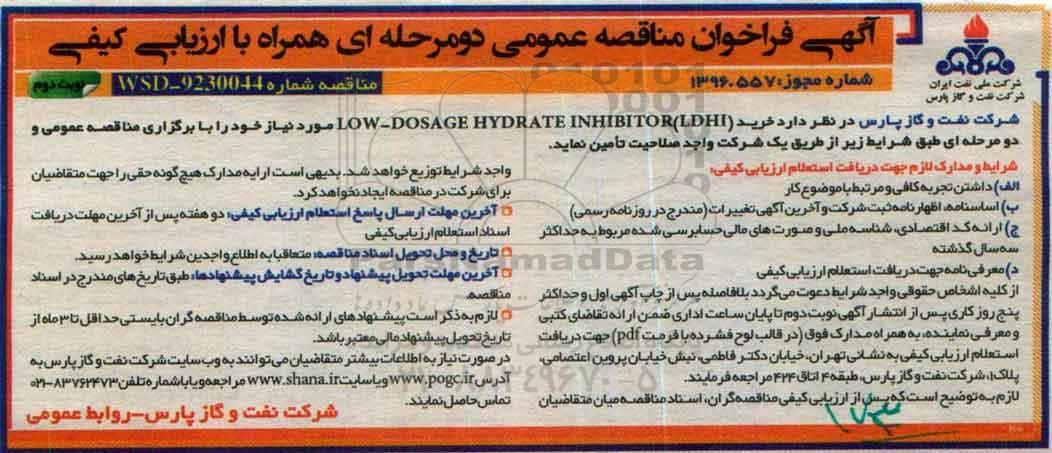 آگهی فراخوان مناقصه عمومی دومرحله ای همراه با ارزیابی کیفی
شرکت ملی نفت ایران
شرکت نفت و گاز پارس
شماره مجوز: ۱۳۹۶.۵۵۷
مناقصه شماره WSD-9230044
نوبت دوم
شرکت نفت و گاز پارس در نظر دارد خرید LOW-DOSAGE HYDRATE INHIBITOR(LDHI) مورد نیاز خود را با برگزاری مناقصه عمومی و
دو مرحله ای طبق شرایط زیر از طریق یک شرکت واجد صلاحیت تأمین نماید.
شرایط و مدارک لازم جهت دریافت استعلام ارزیابی کیفی:
الف) داشتن تجربه کافی و مرتبط با موضوع کار
ب) اساسنامه، اظهارنامه ثبت شرکت و آخرین آگهی تغییرات (مندرج در روزنامه رسمی)
ج) ارائه کد اقتصادی، شناسه ملی و صورت های مالی حسابرسی شده مربوط به حداکثر
سه سال گذشته
د) معرفی نامه جهت دریافت استعلام ارزیابی کیفی
از کلیه اشخاص حقوقی واجد شرایط دعوت می گردد بلافاصله پس از چاپ آگهی اول و حداکثر
پنج روز کاری پس از انتشار آگهی نوبت دوم تا پایان ساعت اداری ضمن ارائه تقاضای کتبی
و معرفی نماینده، به همراه مدارک فوق (در قالب لوح فشرده با فرمت pdf) جهت دریافت
استعلام ارزیابی کیفی به نشانی تهران، خیابان دکتر فاطمی، نبش خیابان پروین اعتصامی،
پلاک۱، شرکت نفت و گاز پارس، طبقه ۴ اتاق ۴۲۴ مراجعه فرمایند.
لازم به توضیح است که پس از ارزیابی کیفی مناقصه گران، اسناد مناقصه میان متقاضیان
واجد شرایط توزیع خواهد شد. بدیهی است ارایه مدارک هیچ گونه حقی را جهت متقاضیان
برای شرکت در مناقصه ایجاد نخواهد کرد.
آخرین مهلت ارسال پاسخ استعلام ارزیابی کیفی: دو هفته پس از آخرین مهلت دریافت
اسناد استعلام ارزیابی کیفی
تاریخ و محل تحویل اسناد مناقصه: متعاقبا به اطلاع واجدین شرایط خواهد رسید.
آخرین مهلت تحویل پیشنهاد و تاریخ گشایش پیشنهادها: طبق تاریخ های مندرج در اسناد
مناقصه.
لازم به ذکر است پیشنهادهای ارائه شده توسط مناقصه گران بایستی حداقل تا ۳ ماه از
تاریخ تحویل پیشنهاد مالی معتبر باشد.
در صورت نیاز به اطلاعات بیشتر متقاضیان می توانند به وب سایت شرکت نفت و گاز پارس به
آدرس www.pogc.ir و یا سایت www.shana.ir مراجعه و یا با شماره تلفن ۸۳۷۶۲۴۷۳-۰۲۱
تماس حاصل نمایند.
شرکت نفت و گاز پارس-روابط عمومی